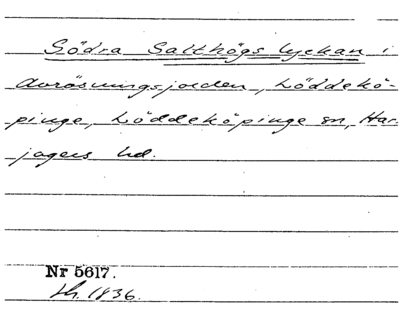 Södra Salthögs lyckan i
avrösningsjorden, Löddekö-
pinge, Löddeköpinge sn, Har-
jagers hd.
Nr 5617.
sk. 1836.